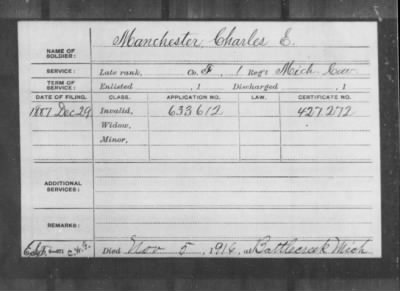 NAME OF SOLDIER: Manchester, Charles E.
SERVICE: Late rank, Co. F, 1 Reg't Mich. Cav.
TERM OF SERVICE: Enlisted , 1 Discharged , 1
DATE OF FILING. CLASS. APPLICATION NO. LAW. CERTIFICATE NO.
1887 Dec 29 Invalid, 633612 427272
Widow,
Minor,
ADDITIONAL SERVICES:
REMARKS:
Died Nov 5, 1914, at Battlecreek Mich